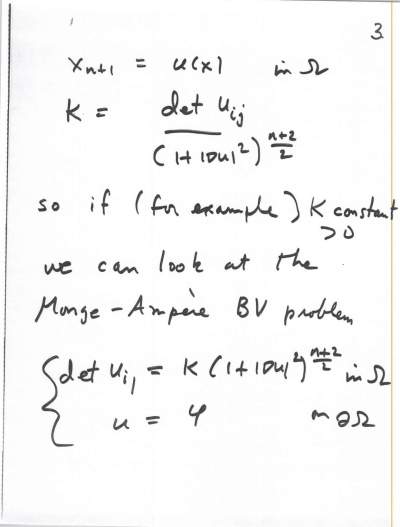 3
x_{n+1} = u(x) in Ω
K = det u_{ij} / (1+|Du|²)^{\frac{n+2}{2}}
so if (for example) K constant
> 0
we can look at the
Monge-Ampère BV problem
{ det u_{ij} = K (1+|Du|²)^{\frac{n+2}{2}} in Ω
u = φ on ∂Ω